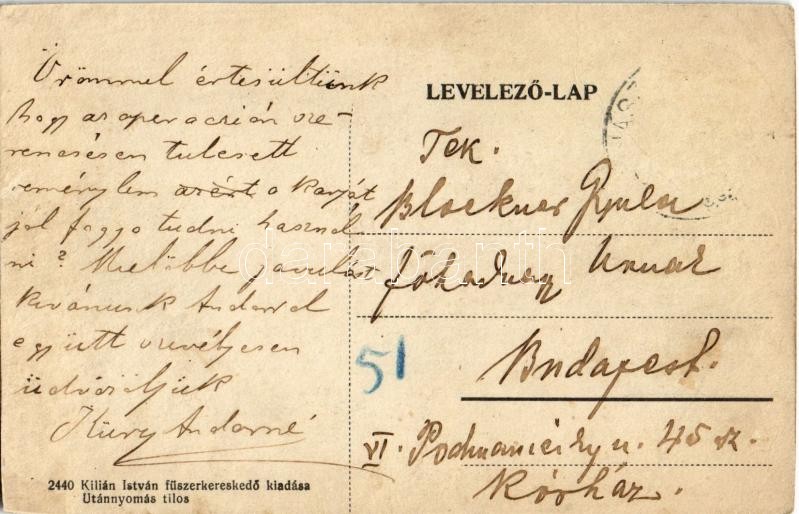 Örömmel értesültünk
hogy az operaczión sze-
rencsésen tulesett
reménylem azért a karját
jól fogja tudni használ
ni? Mielöbbi javulást
kivánunk Andorral
együtt szivélyesen
üdvözöljük
Küry Andorné
2440 Kilián István fűszerkereskedő kiadása
Utánnyomás tilos
LEVELEZŐ-LAP
Tek.
Blockner Gyula
főhadnagy Urnak
Budapest.
VI. Podmaniczky u. 45 sz.
Kórház.
51
darabanth